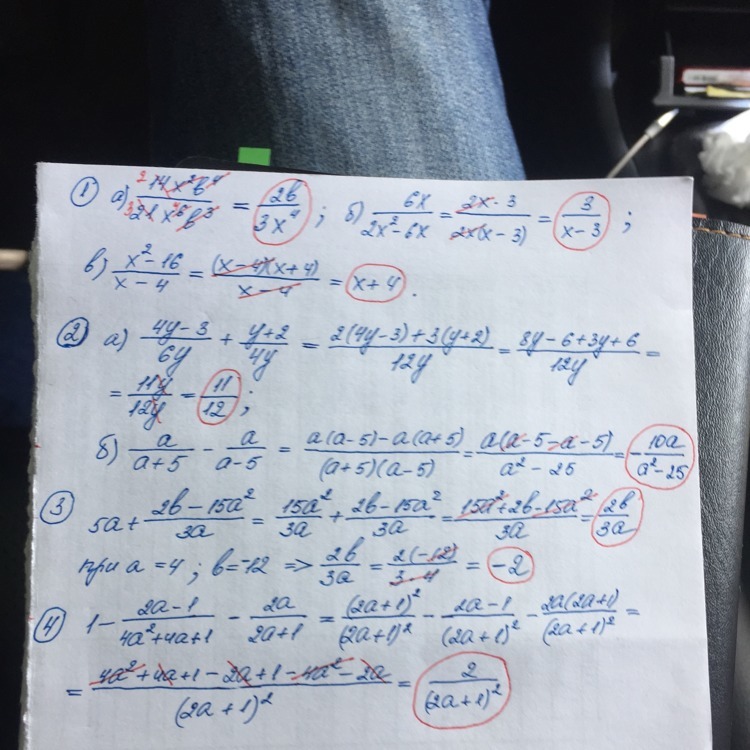 1 а) 14x²b⁴/21x⁶b³ = 2b/3x⁴ ; б) 6x/2x²-6x = 2x·3/2x(x-3) = 3/x-3 ;
в) x²-16/x-4 = (x-4)(x+4)/x-4 = x+4 .
2 а) 4y-3/6y + y+2/4y = 2(4y-3)+3(y+2)/12y = 8y-6+3y+6/12y =
= 11y/12y = 11/12 ;
б) a/a+5 - a/a-5 = a(a-5)-a(a+5)/(a+5)(a-5) = a(a-5-a-5)/a²-25 = -10a/a²-25
3 5a + 2b-15a²/3a = 15a²/3a + 2b-15a²/3a = 15a²+2b-15a²/3a = 2b/3a
при a=4 ; b=-12 => 2b/3a = 2(-12)/3·4 = -2
4 1 - 2a-1/4a²+4a+1 - 2a/2a+1 = (2a+1)²/(2a+1)² - 2a-1/(2a+1)² - 2a(2a+1)/(2a+1)² =
= 4a²+4a+1-2a+1-4a²-2a/(2a+1)² = 2/(2a+1)²